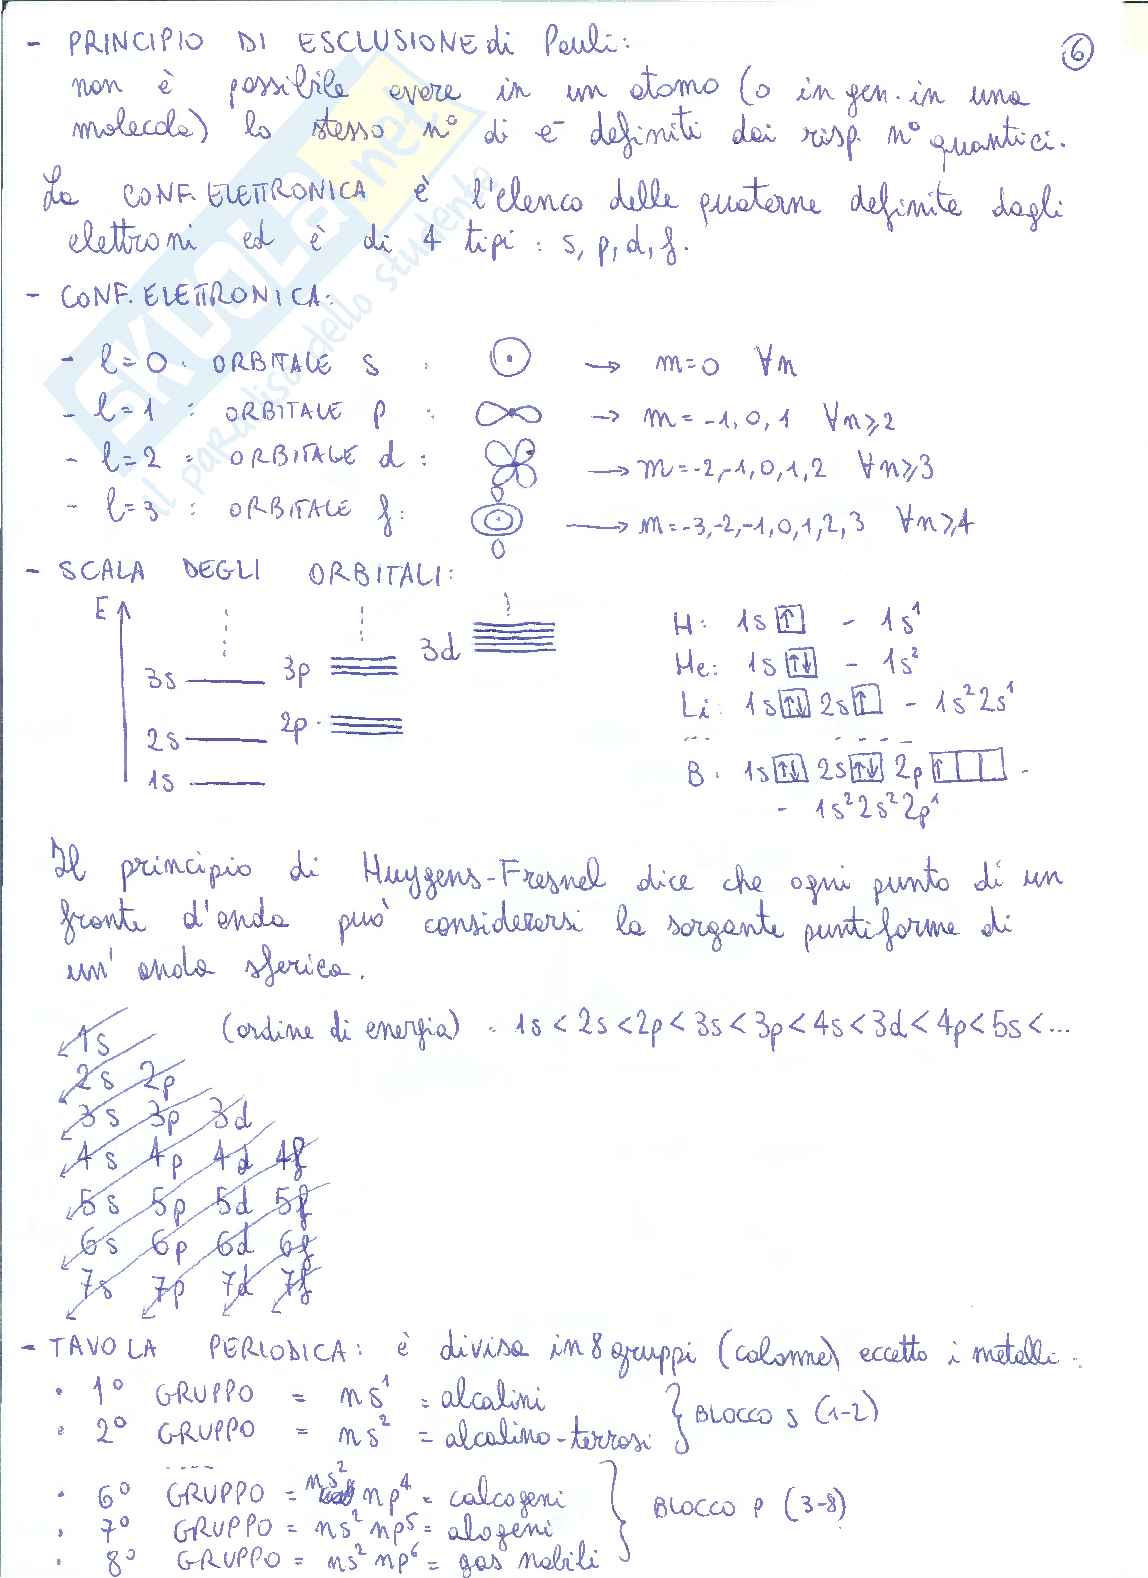 - PRINCIPIO DI ESCLUSIONE di Pauli:
6
non è possibile avere in un atomo (o in gen. in una
molecola) lo stesso n° di e⁻ definiti dai risp. n° quantici.
La CONF. ELETTRONICA è l'elenco delle quaterne definite dagli
elettroni ed è di 4 tipi: s, p, d, f.
- CONF. ELETTRONICA:
- l=0 : ORBITALE s : → m=0 ∀n
- l=1 : ORBITALE p : → m=-1,0,1 ∀n≥2
- l=2 : ORBITALE d : → m=-2,-1,0,1,2 ∀n≥3
- l=3 : ORBITALE f: → m=-3,-2,-1,0,1,2,3 ∀n≥4
- SCALA DEGLI ORBITALI:
E
3s 3p 3d
2s 2p
1s
H: 1s ↑ - 1s¹
He: 1s ↑↓ - 1s²
Li: 1s ↑↓ 2s ↑ - 1s²2s¹
B: 1s ↑↓ 2s ↑↓ 2p ↑ -
- 1s²2s²2p¹
Il principio di Huygens-Fresnel dice che ogni punto di un
fronte d'onda può considerarsi la sorgante puntiforme di
un' onda sferica.
(ordine di energia) = 1s < 2s < 2p < 3s < 3p < 4s < 3d < 4p < 5s < ...
1s
2s 2p
3s 3p 3d
4s 4p 4d 4f
5s 5p 5d 5f
6s 6p 6d 6f
7s 7p 7d 7f
- TAVOLA PERIODICA: è divisa in 8 gruppi (colonne) eccetto i metalli:
· 1° GRUPPO = ns¹ = alcalini
· 2° GRUPPO = ns² = alcalino-terrosi
BLOCCO s (1-2)
· 6° GRUPPO = ns² np⁴ = calcogeni
· 7° GRUPPO = ns² np⁵ = alogeni
· 8° GRUPPO = ns² np⁶ = gas nobili
BLOCCO p (3-8)
SKUOLA.net
il paradiso dello studente